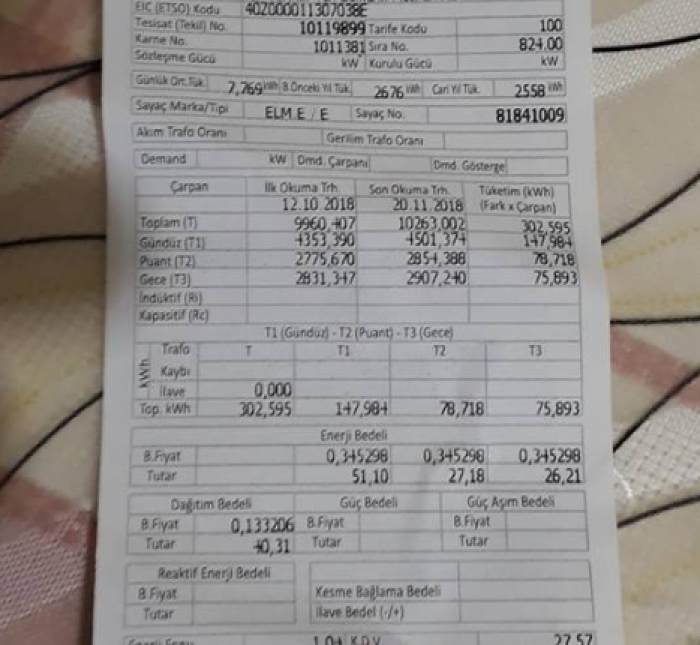 EIC (ETSO) Kodu 40Z000011307038E
Tesisat (Tekil) No. 10119899 Tarife Kodu 100
Karne No. 1011381 Sıra No. 824.00
Sözleşme Gücü kW Kurulu Gücü kW
Günlük Ort.Tük. 7,769 kWh B.Önceki Yıl Tük. 2676 kWh Cari Yıl Tük. 2558 kWh
Sayaç Marka/Tipi ELM.E / E Sayaç No. 81841009
Akım Trafo Oranı Gerilim Trafo Oranı
Demand kW Dmd. Çarpanı Dmd. Gösterge
Çarpan İlk Okuma Trh. Son Okuma Trh. Tüketim (kWh)
12.10 2018 20.11.2018 (Fark x Çarpan)
Toplam (T) 9960,407 10263,002 302,595
Gündüz (T1) 4353,390 4501,374 147,984
Puant (T2) 2775,670 2854,388 78,718
Gece (T3) 2831,347 2907,240 75,893
İndüktif (Ri)
Kapasitif (Rc)
T1 (Gündüz) - T2 (Puant) - T3 (Gece)
kWh Trafo T T1 T2 T3
Kaybı
İlave 0,000
Top. kWh 302,595 147,984 78,718 75,893
Enerji Bedeli
B.Fiyat 0,345298 0,345298 0,345298
Tutar 51,10 27,18 26,21
Dağıtım Bedeli Güç Bedeli Güç Aşım Bedeli
B.Fiyat 0,133206 B.Fiyat B.Fiyat
Tutar 40,31 Tutar Tutar
Reaktif Enerji Bedeli
B.Fiyat Kesme Bağlama Bedeli
Tutar İlave Bedel (-/+)
Enerji Fonu 1,04 K.D.V. 27,57